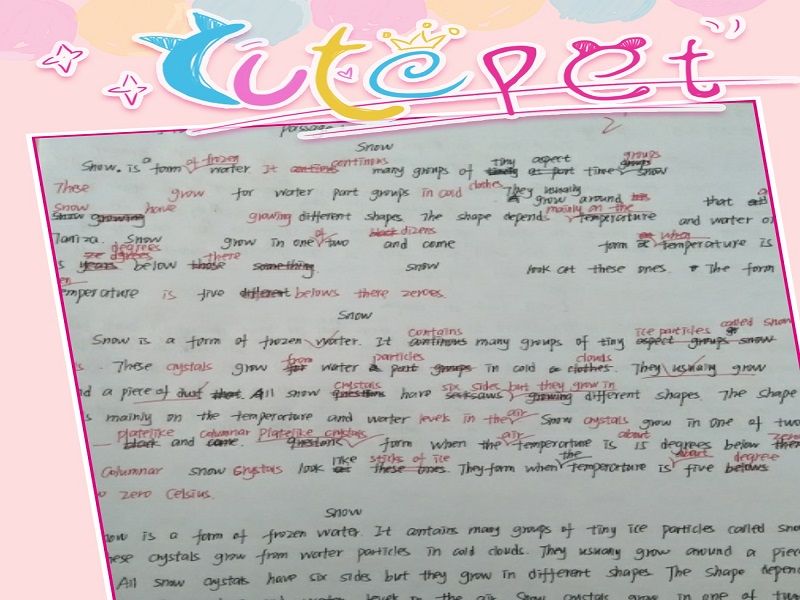 Cute pet
passage 2
Snow
Snow. is a form of frozen water It contains continous many groups of tiny aspect at part time groups snow
These grow for water part groups in cold clothes. They usually grow around that
snow growing have growing different shapes The shape depends mainly on the temperature and water or
Snow grow in one of two black dizens and come form temperature is
degrees below those there something. snow look at these ones. The form
temperature is five different belows there zeroes.
Snow
Snow is a form of frozen water. It continous contains many groups of tiny aspect groups snow ice particles called snow
These crystals grow for from water a part groups particles in cold clothes. clouds They usually grow
a piece of dust that. All snow questions crystals have six sides but they grow in growing different shapes. The shape
is mainly on the temperature and water levels in the air Snow crystals grow in one of two
black platelike and came. columnar Platelike crystals form when the air temperature is about is degrees below
Columnar snow crystals look like these ones. sticks of ice They form when the temperature is about five belows degree
zero Celsius.
Snow
Snow is a form of frozen water. It contains many groups of tiny ice particles called snow
These crystals grow from water particles in cold clouds. They usually grow around a piece
All snow crystals have six sides but they grow in different shapes The shape depen
water levels in the air. Snow crystals grow in one of two